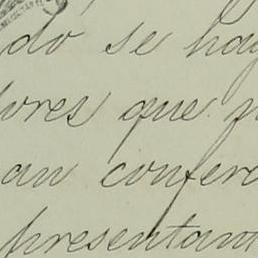 do se hay
ores que
an confer
presentant